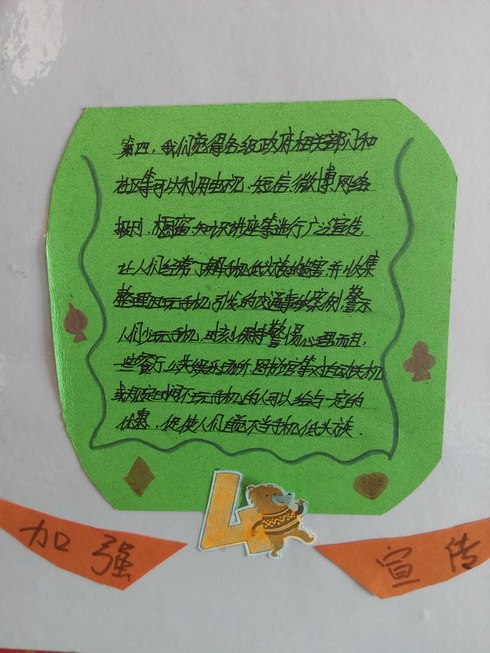 第四，我们觉得各级政府相关部门和
社区等可以利用电视、短信、微博、网络
报刊、橱窗、知识讲座等进行广泛宣传，
让人们经常了解手机低头族的危害，并收集
整理因玩手机引发的交通事故案例，警示
人们少玩手机，时刻保持警惕心理。而且，
一些餐厅、公共娱乐场所、图书馆等对自动关机
或规定时间不玩手机的人可以给与一定的
优惠，促使人们自觉不当手机低头族。
4
加强 宣传